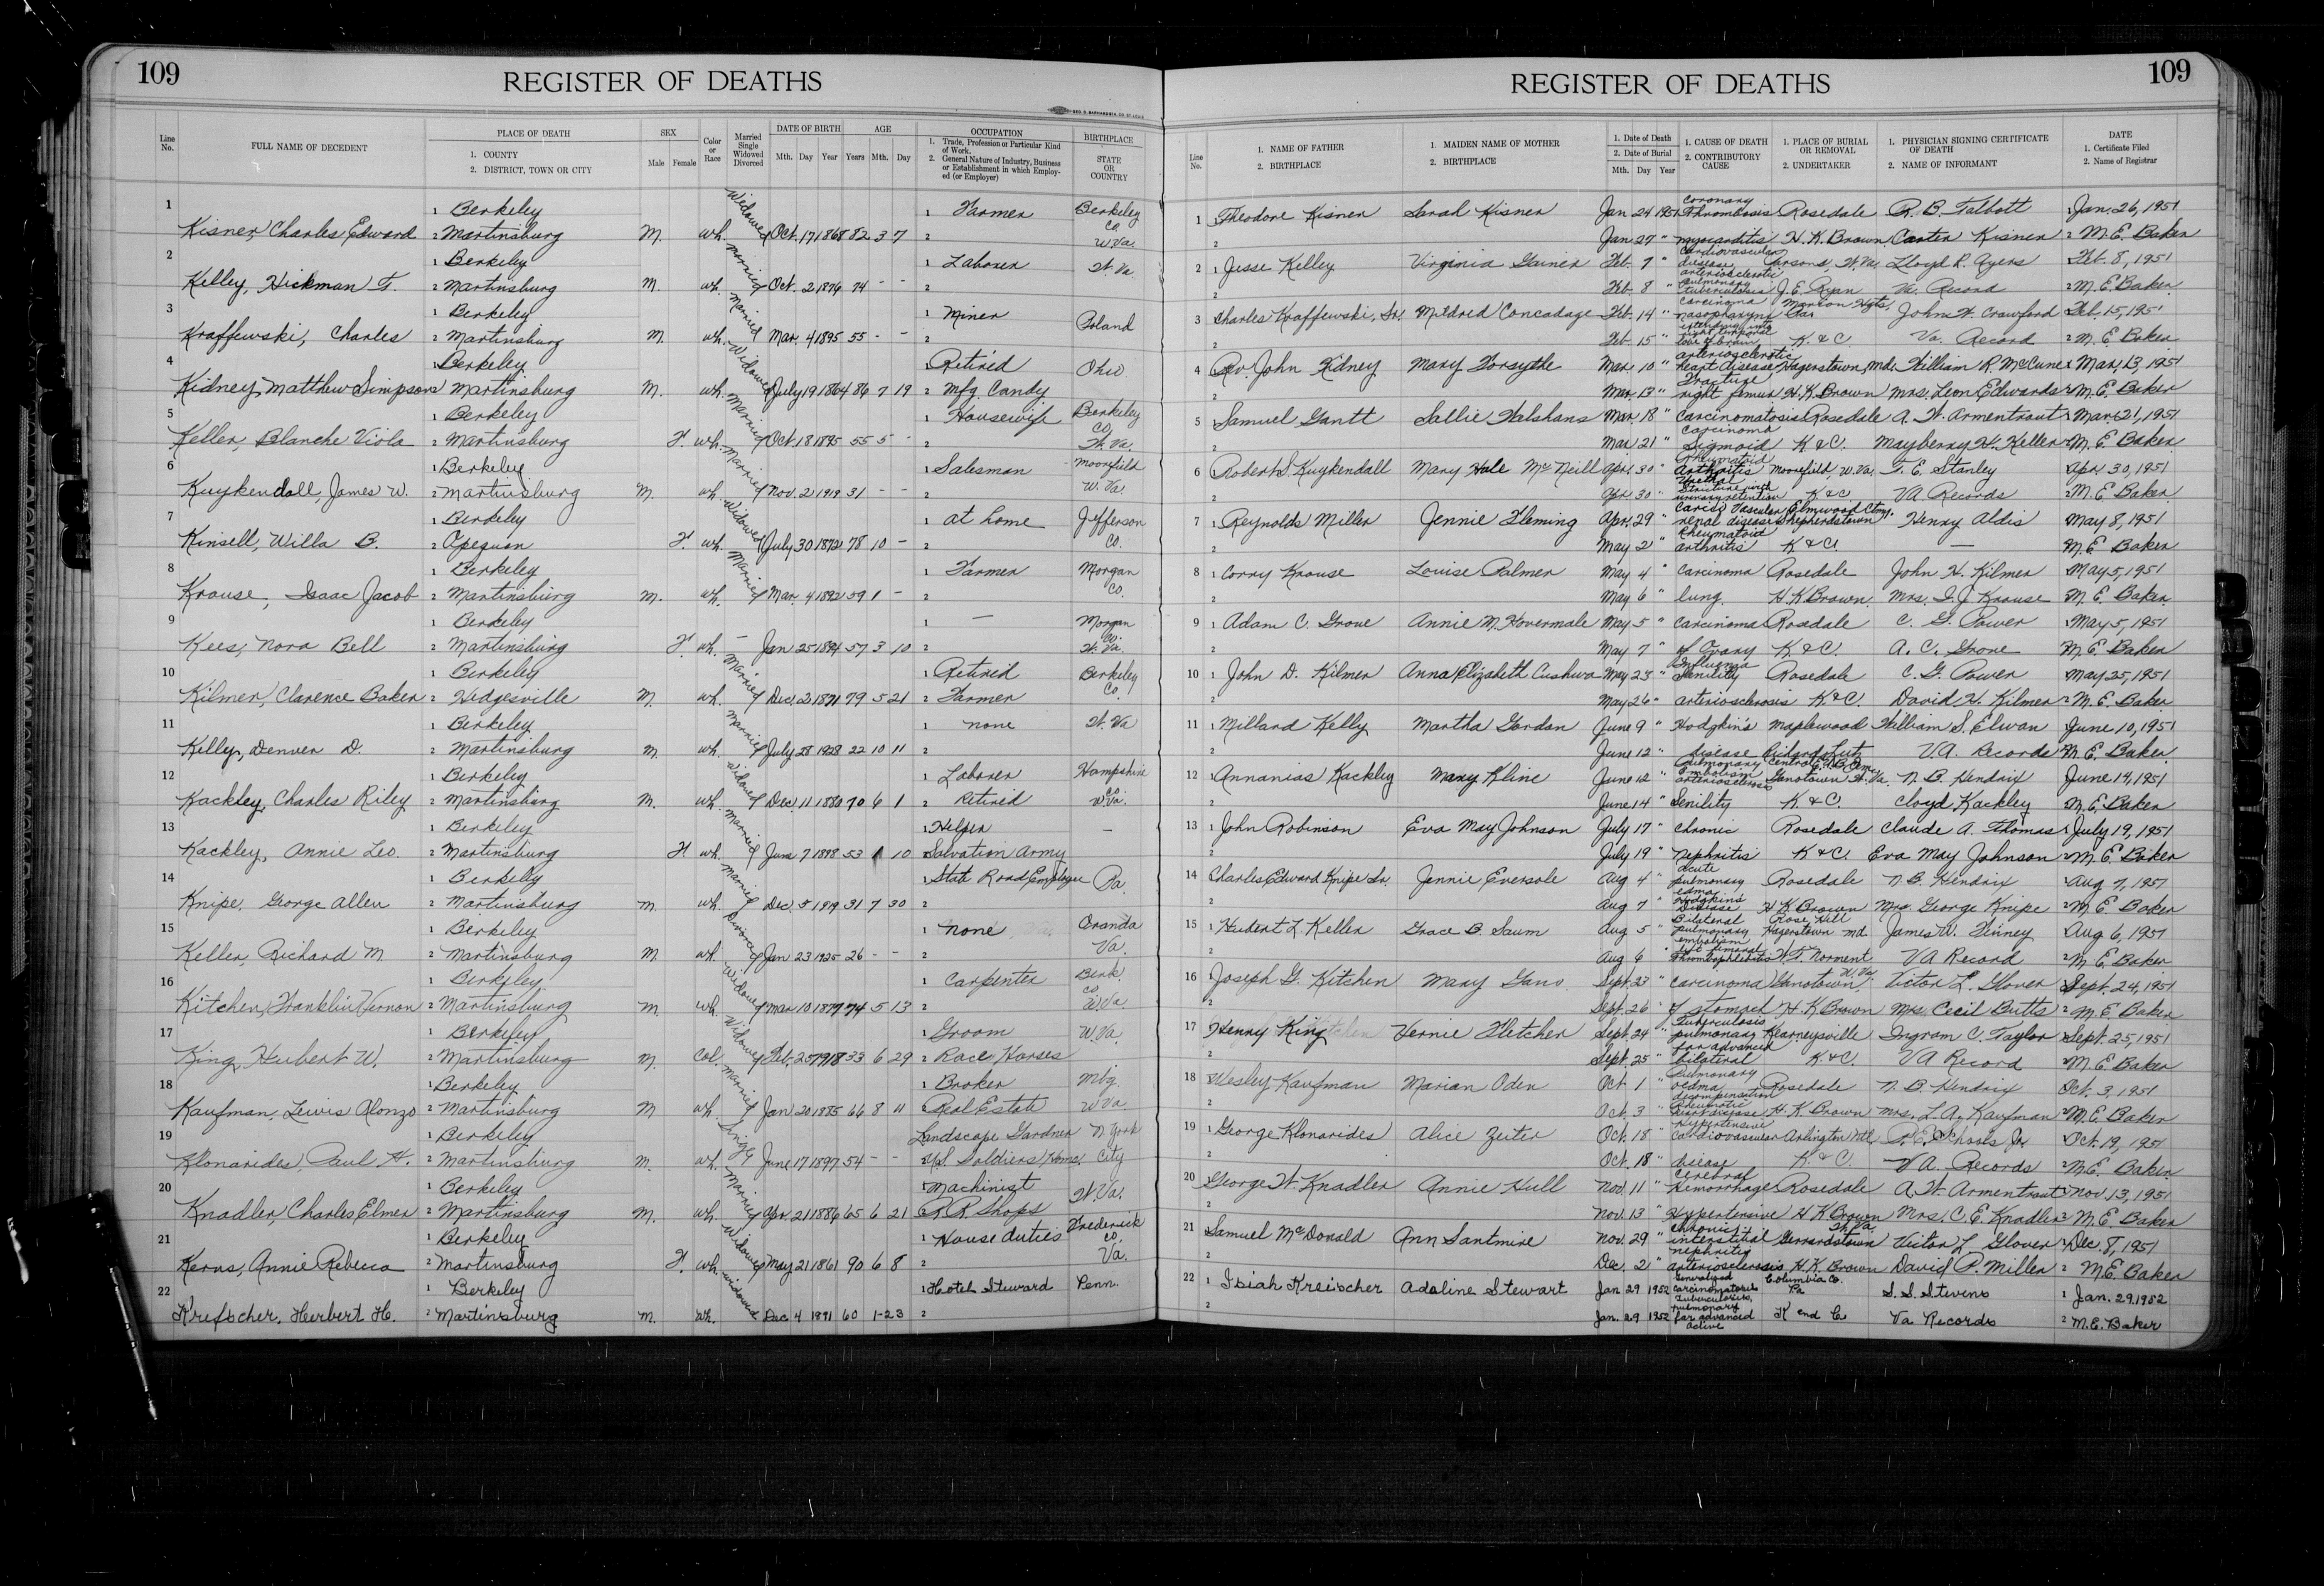 109
REGISTER OF DEATHS
Line No.
FULL NAME OF DECEDENT
PLACE OF DEATH
1. COUNTY
2. DISTRICT, TOWN OR CITY
SEX
Male Female
Color or Race
Married Single Widowed Divorced
DATE OF BIRTH
Mth. Day Year
AGE
Years Mth. Day
OCCUPATION
1. Trade, Profession or Particular Kind of Work.
2. General Nature of Industry, Business or Establishment in which Employed (or Employer)
BIRTHPLACE
STATE OR COUNTRY
1 1 Berkeley Widowed 1 Farmer Berkeley Co. W.Va.
Kisner, Charles Edward 2 Martinsburg M. wh. Oct. 17 1868 82 3 7 2
2 1 Berkeley Married 1 Laborer W. Va.
Kelley, Hickman F. 2 Martinsburg M. wh. Oct. 2 1876 74 - - 2
3 1 Berkeley Married 1 Miner Poland
Kraffewski, Charles 2 Martinsburg M. wh. Mar. 4 1895 55 - - 2
4 1 Berkeley Widowed Retired Ohio
Kidney, Matthew Simpson 2 Martinsburg M. wh. July 19 1864 86 7 19 2 Mfg Candy
5 1 Berkeley Married 1 Housewife Berkeley Co. W.Va.
Keller, Blanche Viola 2 Martinsburg F. wh. Oct 18 1895 55 5 - 2
6 1 Berkeley Married 1 Salesman Moorefield W. Va.
Kuykendall, James W. 2 Martinsburg M. wh. Nov. 2 1919 31 - - 2
7 1 Berkeley Widowed 1 at home Jefferson Co.
Kinsell, Willa B. 2 Opequon F. wh. July 30 1872 78 10 - 2
8 1 Berkeley Married 1 Farmer Morgan Co.
Krouse, Isaac Jacob 2 Martinsburg M. wh. Mar. 4 1892 59 1 - 2
9 1 Berkeley 1 — Morgan Co. W.Va.
Kees, Nora Bell 2 Martinsburg F. wh. — Jan 25 1894 57 3 10 2
10 1 Berkeley Married 1 Retired Berkeley Co.
Kilmer, Clarence Baker 2 Hedgesville M. wh. Dec. 2 1871 79 5 21 2 Farmer
11 1 Berkeley Married 1 none W. Va
Kelly, Denver D. 2 Martinsburg M. wh. July 28 1928 22 10 11 2
12 1 Berkeley Widowed 1 Laborer Hampshire Co. W.Va.
Kackley, Charles Riley 2 Martinsburg M. wh. Dec. 11 1880 70 6 1 2 Retired
13 1 Berkeley Married 1 Helper —
Kackley, Annie Leo. 2 Martinsburg F. wh. June 7 1898 53 1 10 2 Salvation Army
14 1 Berkeley Married 1 State Road Employee Pa.
Knipe, George Allen 2 Martinsburg M. wh. Dec. 5 1919 31 7 30 2
15 1 Berkeley Divorced 1 None Oranda Va.
Keller, Richard M 2 Martinsburg M. wh. Jan 23 1925 26 - - 2
16 1 Berkeley Widowed 1 Carpenter Berk. Co. W.Va.
Kitchen, Franklin Vernon 2 Martinsburg M. wh. Mar 10 1877 74 5 13 2
17 1 Berkeley Widowed 1 Groom W.Va.
King, Hubert W. 2 Martinsburg M. Col. Feb. 25 1918 33 6 29 2 Race Horses
18 1 Berkeley Married 1 Broker Mbg. W.Va.
Kaufman, Lewis Alonzo 2 Martinsburg M. wh. Jan 20 1885 66 8 11 2 Real Estate
19 1 Berkeley Single Landscape Gardner N. York City
Klonarides, Paul H. 2 Martinsburg M. wh. June 17 1897 54 - - 2 U.S. Soldiers Home
20 1 Berkeley Married 1 Machinist W. Va.
Knadler, Charles Elmer 2 Martinsburg M. wh. Apr. 21 1886 65 6 21 R.R. Shops
21 1 Berkeley Widowed 1 House duties Frederick Co. Va.
Kerns, Annie Rebecca 2 Martinsburg F. wh. May 21 1861 90 6 8 2
22 1 Berkeley widowed 1 Hotel Steward Penn.
Kreischer, Herbert H. 2 Martinsburg M. wh. Dec 4 1891 60 1-23 2
REGISTER OF DEATHS
109
Line No.
1. NAME OF FATHER
2. BIRTHPLACE
1. MAIDEN NAME OF MOTHER
2. BIRTHPLACE
1. Date of Death
2. Date of Burial
Mth. Day Year
1. CAUSE OF DEATH
2. CONTRIBUTORY CAUSE
1. PLACE OF BURIAL OR REMOVAL
2. UNDERTAKER
1. PHYSICIAN SIGNING CERTIFICATE OF DEATH
2. NAME OF INFORMANT
DATE
1. Certificate Filed
2. Name of Registrar
1 1 Theodore Kisner Sarah Kisner Jan 24 1951 Coronary Thrombosis Rosedale R. B. Talbott 1 Jan. 26, 1951
2 Jan 27 " myocarditis H. K. Brown Carter Kisner 2 M. E. Baker
2 1 Jesse Kelley Virginia Gainer Feb. 7 " Cardiovascular disease arteriosclerotic Parsons, W. Va. Lloyd R. Ayers Feb. 8, 1951
2 Feb 8 " pulmonary tuberculosis J. E. Ryan Va. Record 2 M. E. Baker
3 Charles Kraffewski, Sr. Mildred Concadage Feb. 14 " carcinoma nasopharynx Marion Hgts, Pa. John W. Crawford Feb. 15, 1951
2 Feb. 15 " extending into right temporal lobe of brain K. & C. Va. Record 2 M. E. Baker
4 Rev. John Kidney Mary Forsythe Mar. 10 " arteriosclerotic heart disease Hagerstown, Md. William R. McCune Mar. 13, 1951
2 Mar. 13 " Fracture right femur H. K. Brown Mrs. Leon Edwards 2 M. E. Baker
5 Samuel Gantt Sallie Walshans Mar. 18 " Carcinomatosis Rosedale A. W. Armentrout Mar. 21, 1951
2 Mar 21 " Carcinoma Sigmoid K & C. Mayberry H. Keller M. E. Baker
6 Robert S. Kuykendall Mary Hale McNeill Apr. 30 " Rheumatoid arthritis Moorefield, W. Va. T. E. Stanley Apr. 30, 1951
2 Apr. 30 " Urethral Stricture with urinary retention K & C. VA Records 2 M. E. Baker
7 1 Reynolds Miller Jennie Fleming Apr. 29 " Cardio Vascular renal disease Elmwood Cmy. Shepherdstown Henry Aldis May 8, 1951
2 May 2 " Rheumatoid arthritis K & C. — M. E. Baker
8 1 Corry Krouse Louise Palmer May 4 " Carcinoma Rosedale John H. Kilmer May 5, 1951
2 May 6 " lung. H K Brown Mrs. I. J Krouse M. E. Baker
9 1 Adam C. Grove Annie M. Hovermale May 5 " Carcinoma Rosedale C. G. Power May 5, 1951
2 May 7 " of Ovary K. & C. A. C. Grove M. E. Baker
10 1 John D. Kilmer Anna Elizabeth Cushwa May 23 " Influenza Senility Rosedale C. G. Power May 25, 1951
May 26 " arteriosclerosis K & C. David H. Kilmer 2 M. E. Baker
11 1 Millard Kelly Martha Gordan June 9 " Hodgkin's Maplewood William S. Elwan June 10, 1951
2 June 12 " disease Richard Lutz VA. Records M. E. Baker
12 1 Annanias Kackley Mary Kline June 12 " pulmonary Embolism arteriosclerosis Ganotown W. Va. N. B. Hendrix June 14, 1951
2 June 14 " Senility K. & C. Cloyd Kackley M. E. Baker
13 1 John Robinson Eva May Johnson July 17 " Chronic Rosedale Claude A. Thomas 1 July 19, 1951
2 July 19 " Nephritis K & C. Eva May Johnson 2 M. E. Baker
14 Charles Edward Knipe Sr. Jennie Eversole Aug 4 " acute pulmonary edma Rosedale N. B. Hendrix Aug 7, 1951
2 Aug 7 " Hodgkins Disease H. K. Brown Mrs. George Knipe 2 M. E. Baker
15 1 Hubert L. Keller Grace B. Saum Aug 5 " Bilateral pulmonary embolism Rose Hill Hagerstown Md James W. Finney Aug 6, 1951
2 Aug 6 " left femoral Thrombophlebitis Norment VA Record 2 M. E. Baker
16 Joseph G. Kitchen Mary Gano Sept. 23 " Carcinoma Ganotown W. Va. Victor L. Glover Sept. 24, 1951
2 Sept. 26 " of stomach H. K. Brown Mrs. Cecil Butts 2 M. E. Baker
17 Henry King Vernie Fletcher Sept. 24 " Tuberculosis pulmonary Kearneysville Ingram C. Taylor Sept. 25, 1951
2 Sept. 25 " far advanced bilateral K & C. VA Record M. E. Baker
18 Wesley Kaufman Marian Oden Oct 1 " Pulmonary oedma Rosedale N. B. Hendrix Oct. 3, 1951
2 Oct. 3 " decompensation Rheumatic heart disease H. K Brown Mrs. L. A. Kaufman 2 M. E. Baker
19 1 George Klonarides Alice Zeiter Oct. 18 " Hypertensive cardiovascular Arlington Ntl. Oct. 19, 1951
2 Oct. 18 " disease K. & C. VA. Records 2 M. E. Baker
20 George W. Knadler Annie Hull Nov. 11 " Cerebral Hemorrhage Rosedale A. W. Armentrout Nov. 13, 1951
2 Nov. 13 " Hypertensive H K Brown Mrs. C. E. Knadler 2 M. E. Baker
21 Samuel McDonald Ann Santmire Nov. 29 " chronic interstitial nephritis Gerrardstown W. Va. Victor L Glover Dec. 8, 1951
2 Dec 2 " arteriosclerosis H. K. Brown David P. Miller 2 M E Baker
22 1 Isiah Kreischer Adaline Stewart Jan 29 1952 Generalized carcinomatosis Columbia Co. Pa S. S. Stevens 1 Jan. 29. 1952
2 Jan. 29 1952 Tuberculosis, pulmonary far advanced active K and C Va Records 2 M. E. Baker